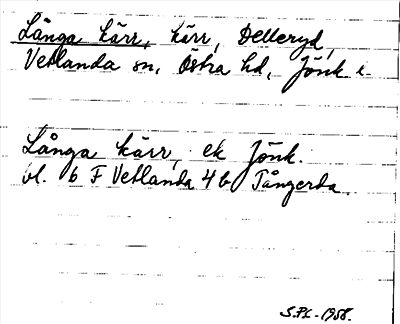 Långa kärr, kärr, Delleryd,
Vetlanda sn, Östra hd, Jönk l.
Långa kärr, ek Jönk.
bl. 6 F Vetlanda 4 b Tångerda.
1958.